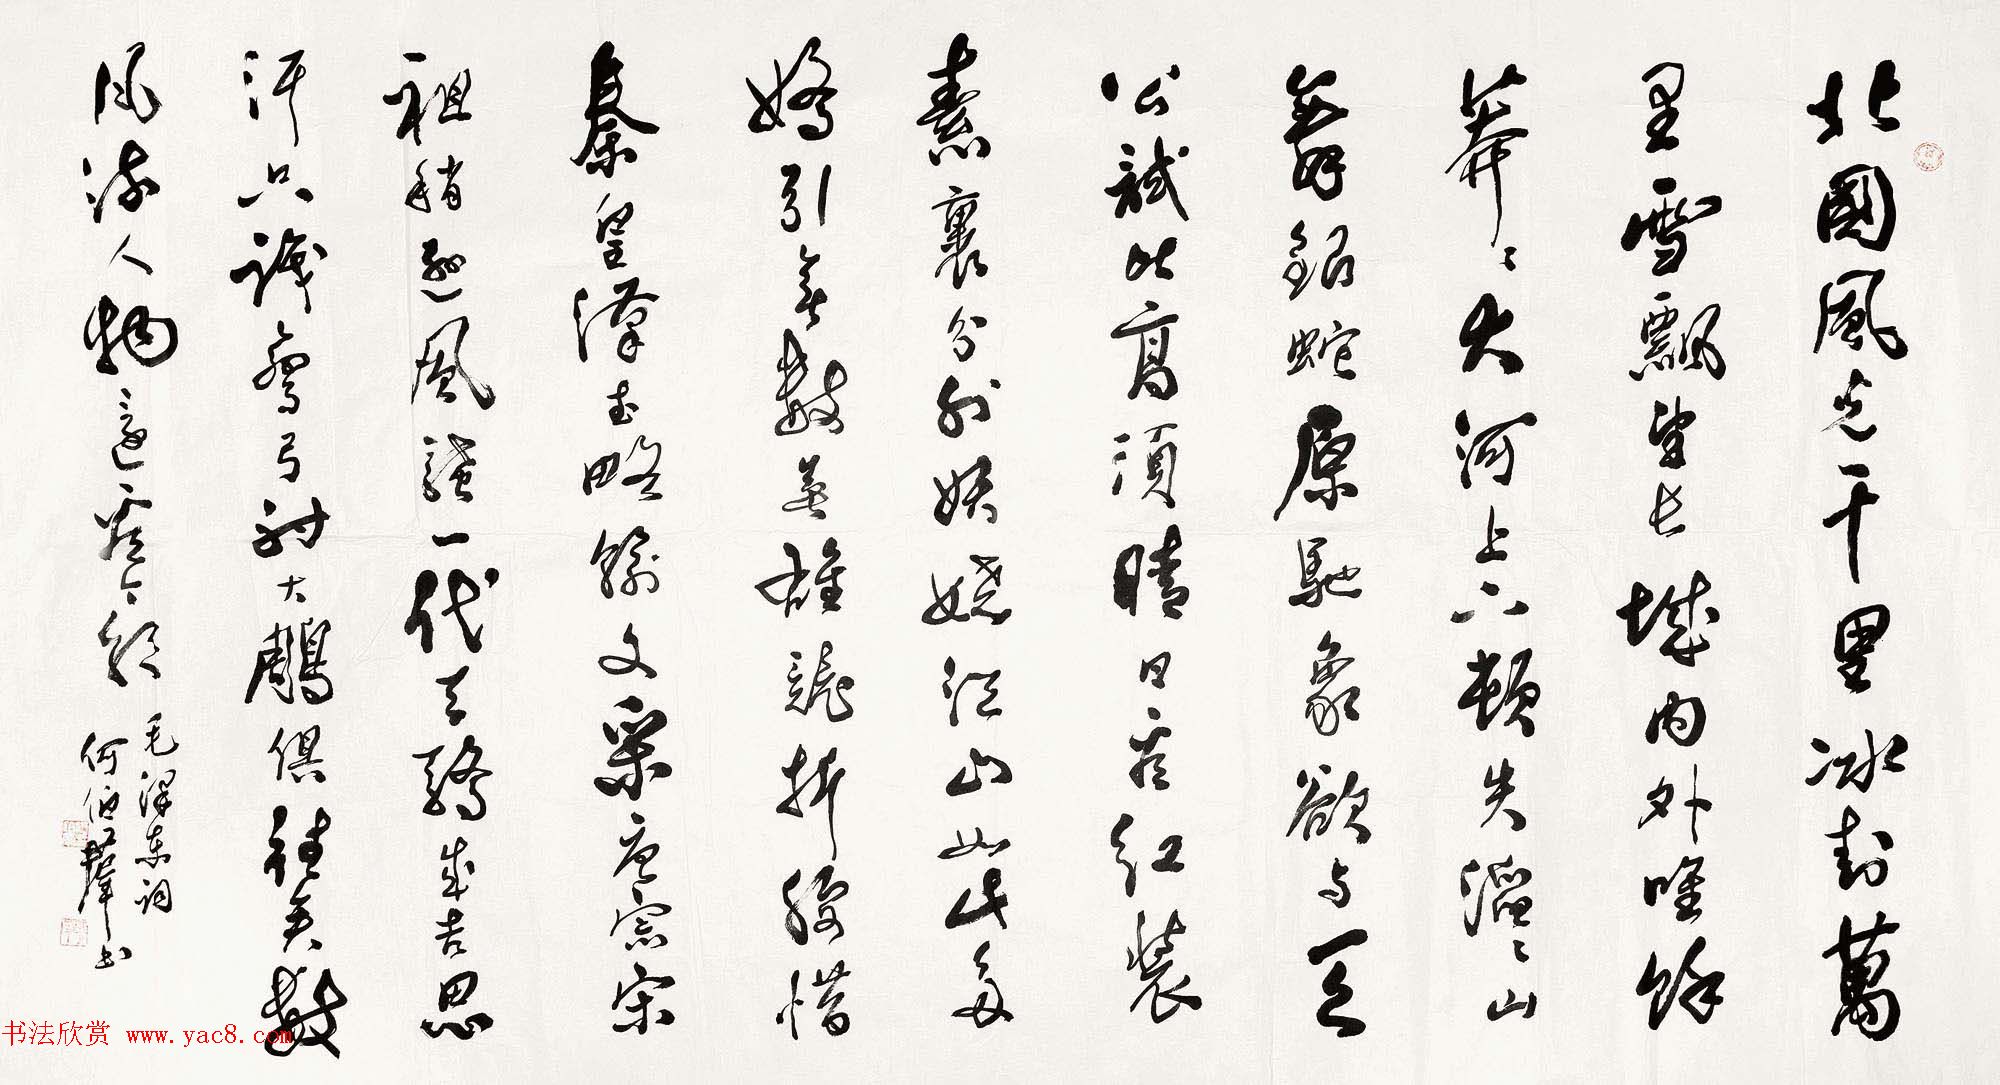 北國風光千里冰封萬
里雪飄望長城內外唯餘
莽〻大河上下頓失滔〻山
舞銀蛇原馳象欲與天
公試比高須晴日看紅裝
素裹分外妖嬈江山如此多
嬌引無數英雄競折腰惜
秦皇漢武略輸文采唐宗宋
祖稍遜風騷一代天驕成吉思
汗只識彎弓射大鵰俱往矣數
风流人物還看今朝
毛澤東詞
何伯群书
书法欣赏 www.yac8.com